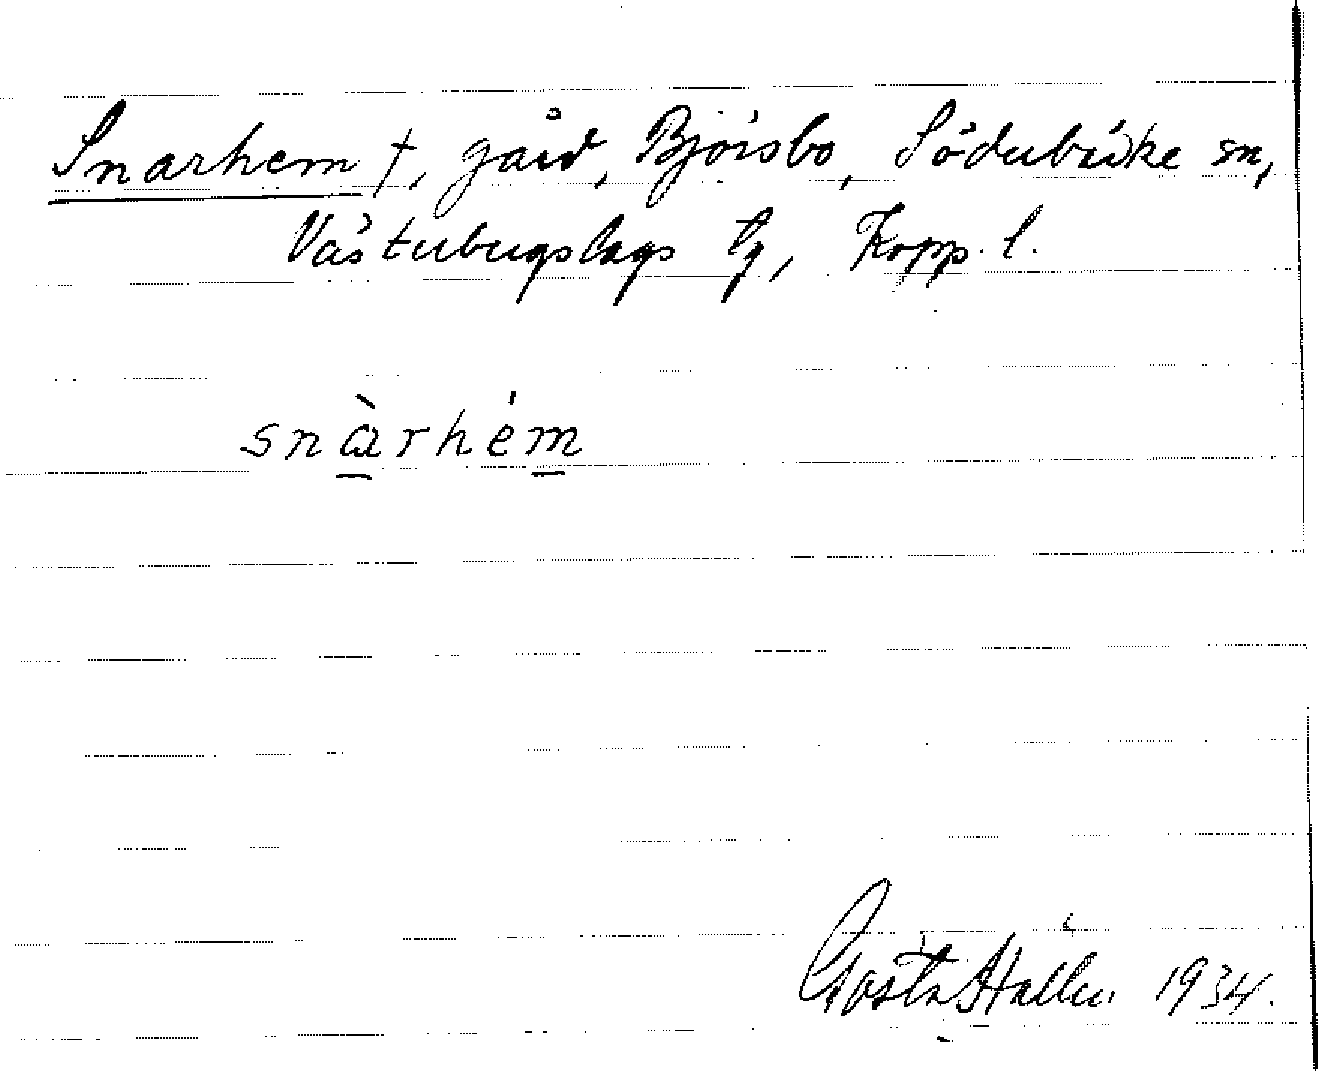 Snarhem †, gård, Björsbo, Söderbärke sn,
Västerbergslags tg, Kopp. l.
snàrhém
Gösta Hallén 1934.